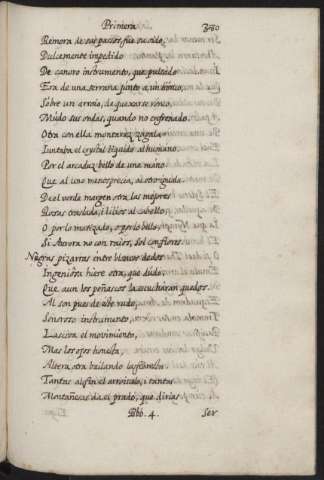 Primera
380
Remora de sus passos fue su oido,
Dulcemente impedido
De canoro instrumento, que pulsado
Era de una serrana junto a un tronco,
Sobre un arroio, de quexarse ronco,
Mudo sus ondas, quando no enfrenado.
Otra con ella montaraz zagala
Juntaba el crystal liquido al humano
Por el arcaduz bello de una mano
Que al uno menosprecia, al otro iguala.
De el verde margen otra, las mejores
Rosas traslada, i lilios al cabello,
O por lo matizado, o por lo bello,
Si Aurora no con raios, Sol con flores.
Negras pizarras entre blancos dedos
Ingeniosa hiere otra, que dudo,
Que aun los peñascos la escucháran quedos.
Al son pues de este rudo,
Sonoroso instrumento,
Lasciva el movimiento,
Mas los ojos honesta,
Altera otra bailando la floresta.
Tantas al fin el arroiuelo, i tantas
Montañesas da el prado, que dirias
Bbb. 4.
Ser